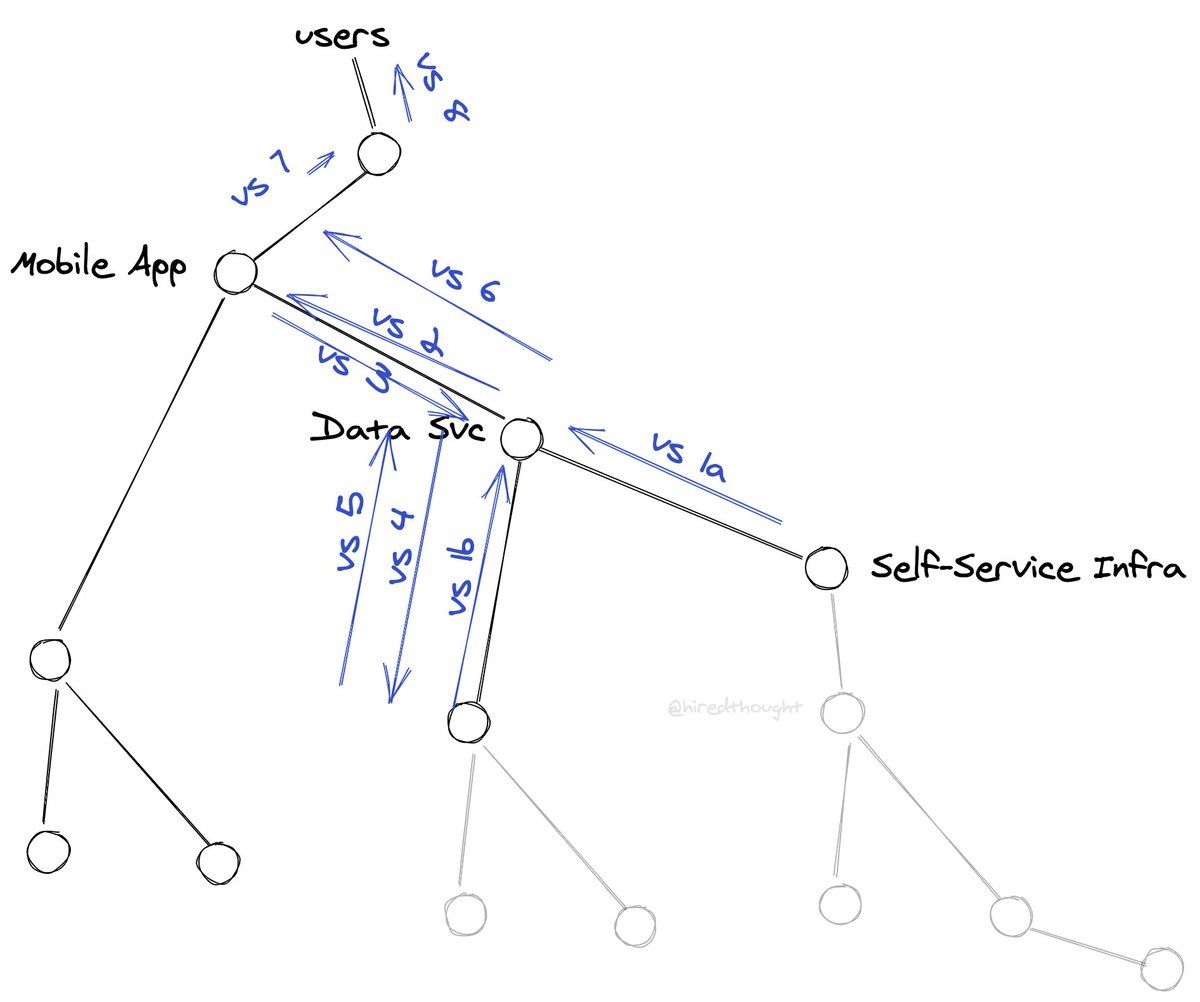 users
vs 8
vs 7
Mobile App
vs 6
vs 2
vs 3
Data Svc
vs 1a
vs 5
vs 4
vs 1b
Self-Service Infra
@hiredthought